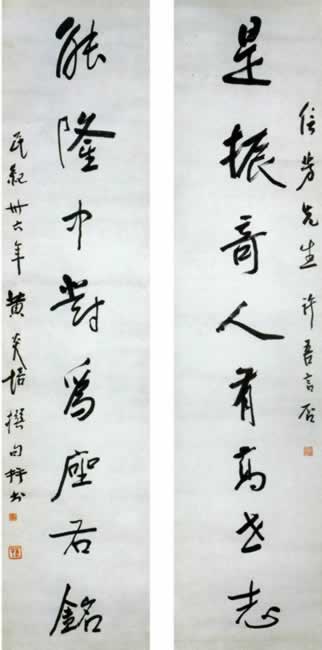 信芳先生 許吾言否
是振奇人有高世志
能隆中對爲座右銘
民紀卅六年黄炎培撰句并書